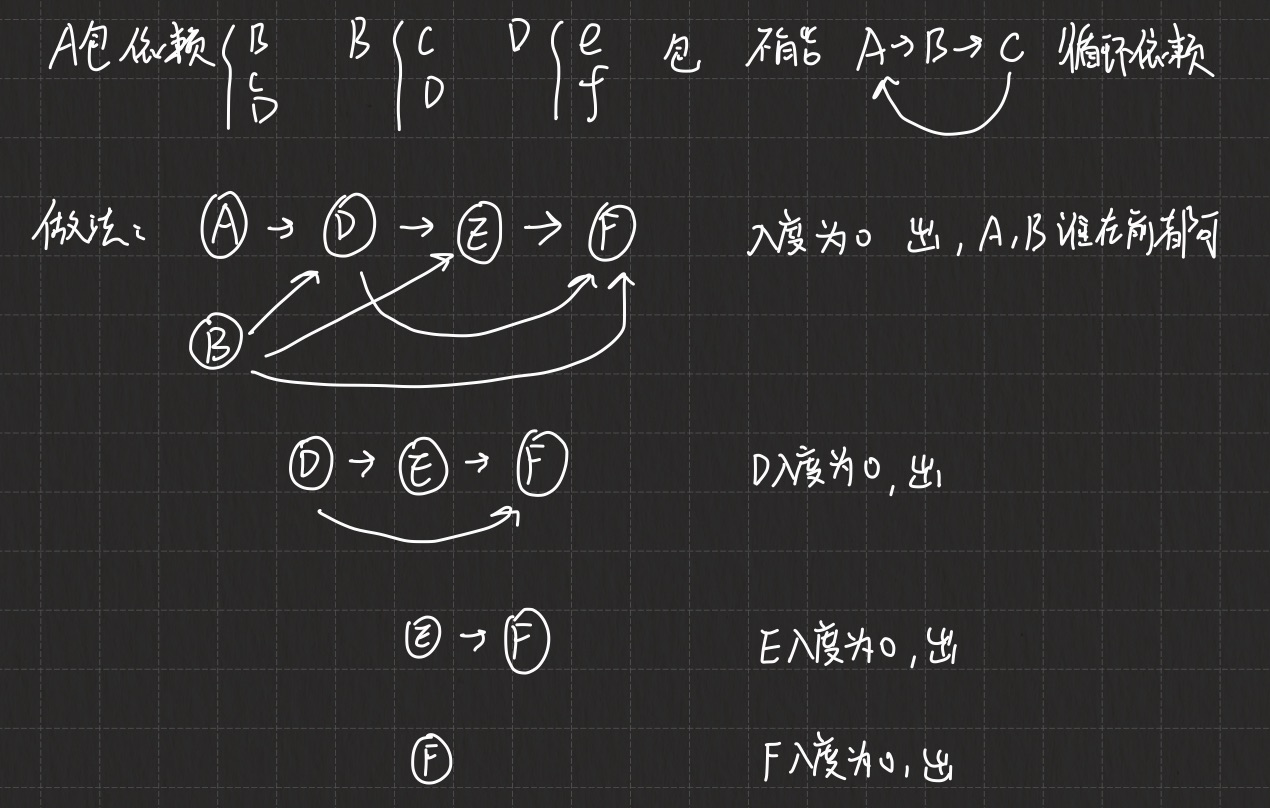 A包依赖{ B C D B{ C D D{ e f 包 不能 A→B→C 循环依赖
做法: A → D → E → F 入度为0 出, A,B谁在前都可
B
D → E → F D入度为0,出
E → F E入度为0,出
F F入度为0,出